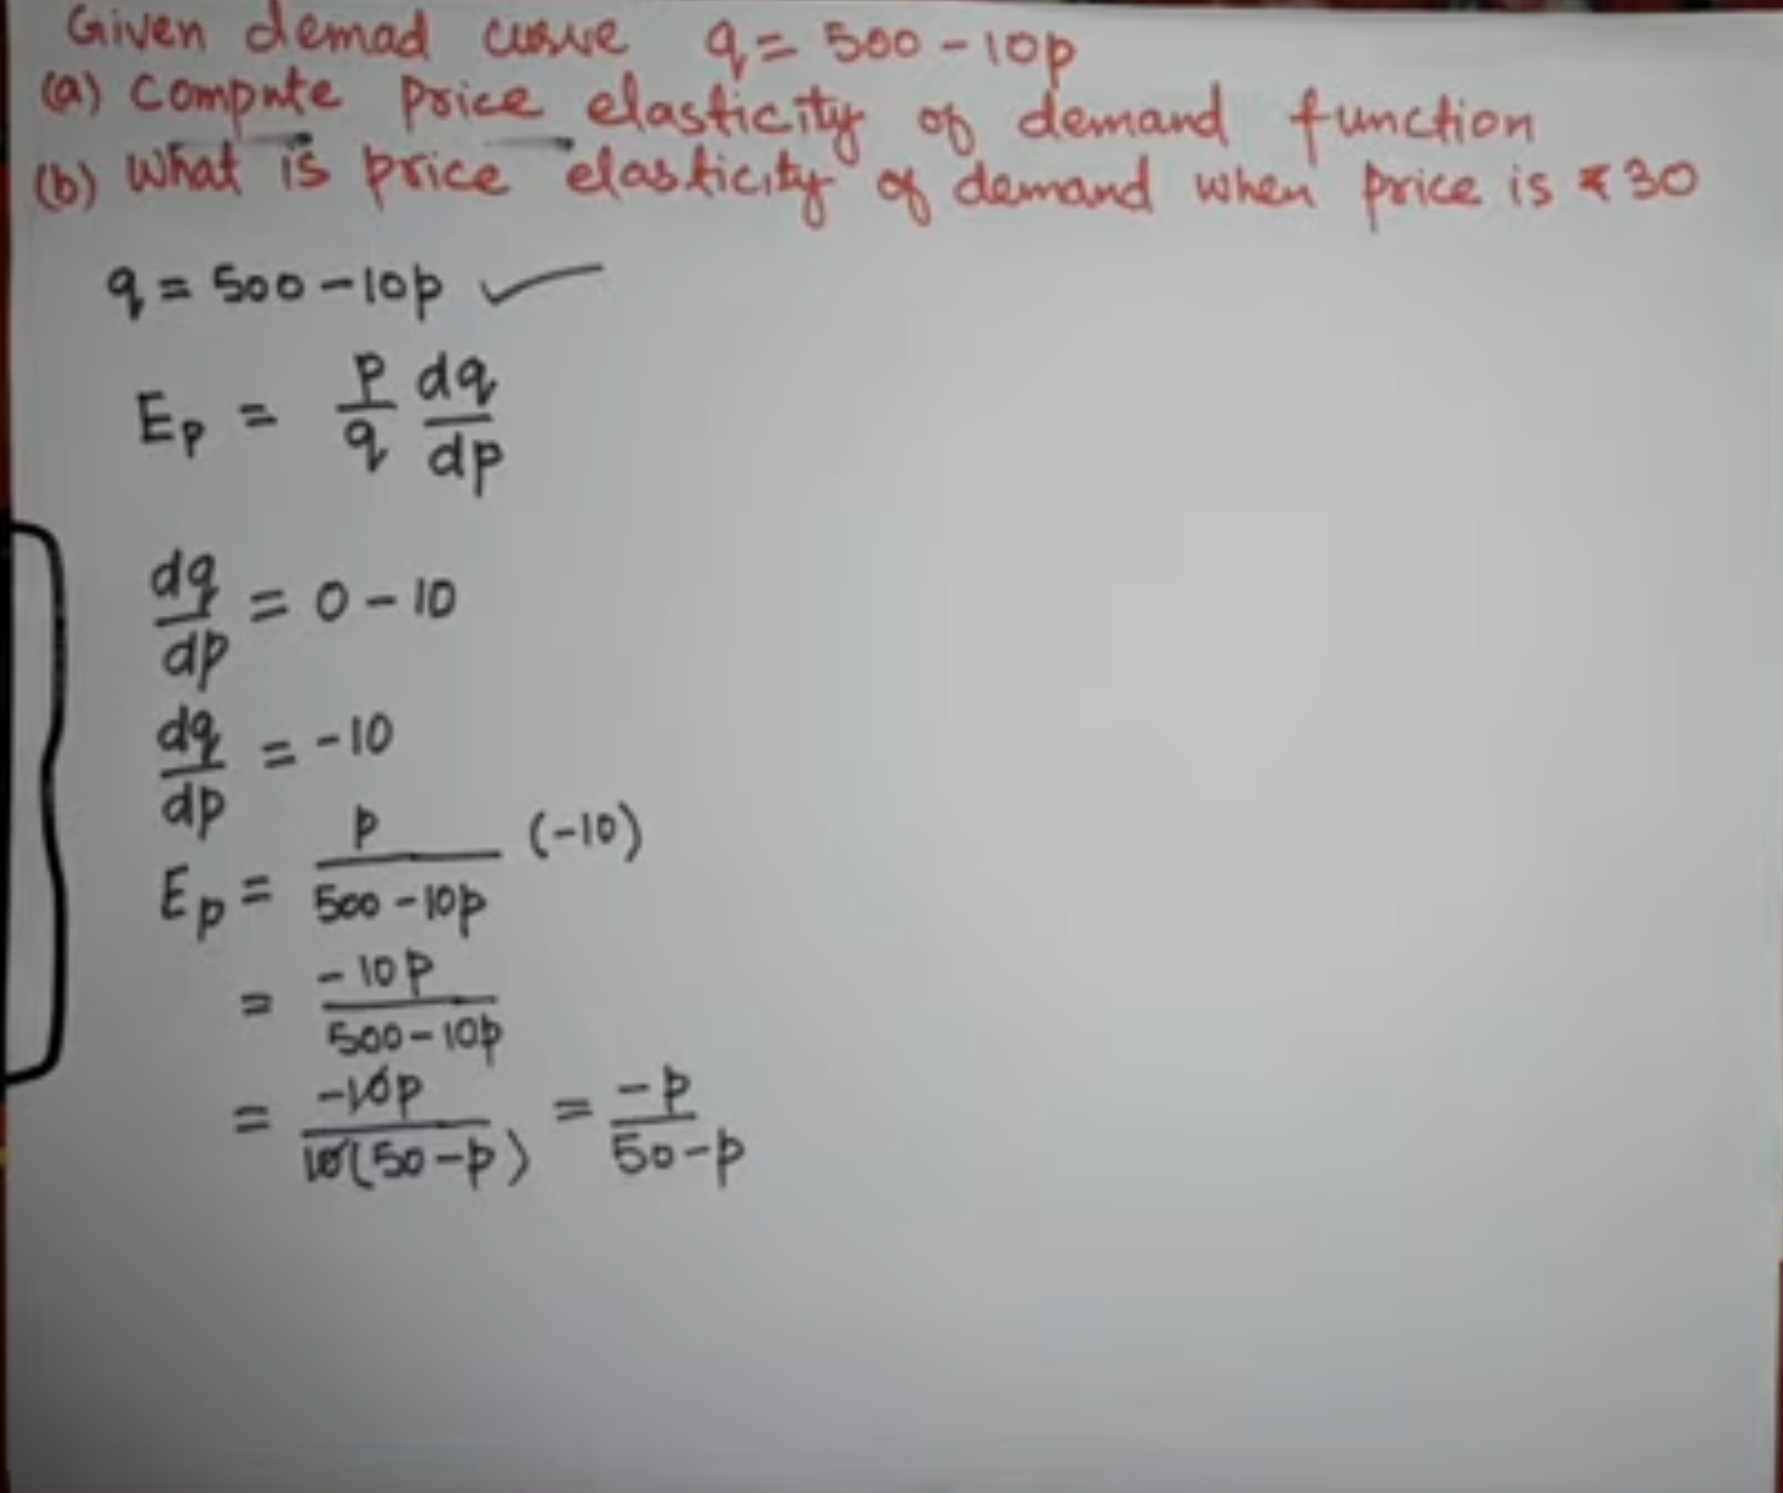 Given demad curve q = 500 - 10p
(a) compute price elasticity of demand function
(b) What is price elasticity of demand when price is ₹30
q = 500 - 10p ✓
Ep = p/q dq/dp
dq/dp = 0 - 10
dq/dp = -10
Ep = p/(500 - 10p) (-10)
= -10p/(500 - 10p)
= -10p/10(50 - p) = -p/(50 - p)